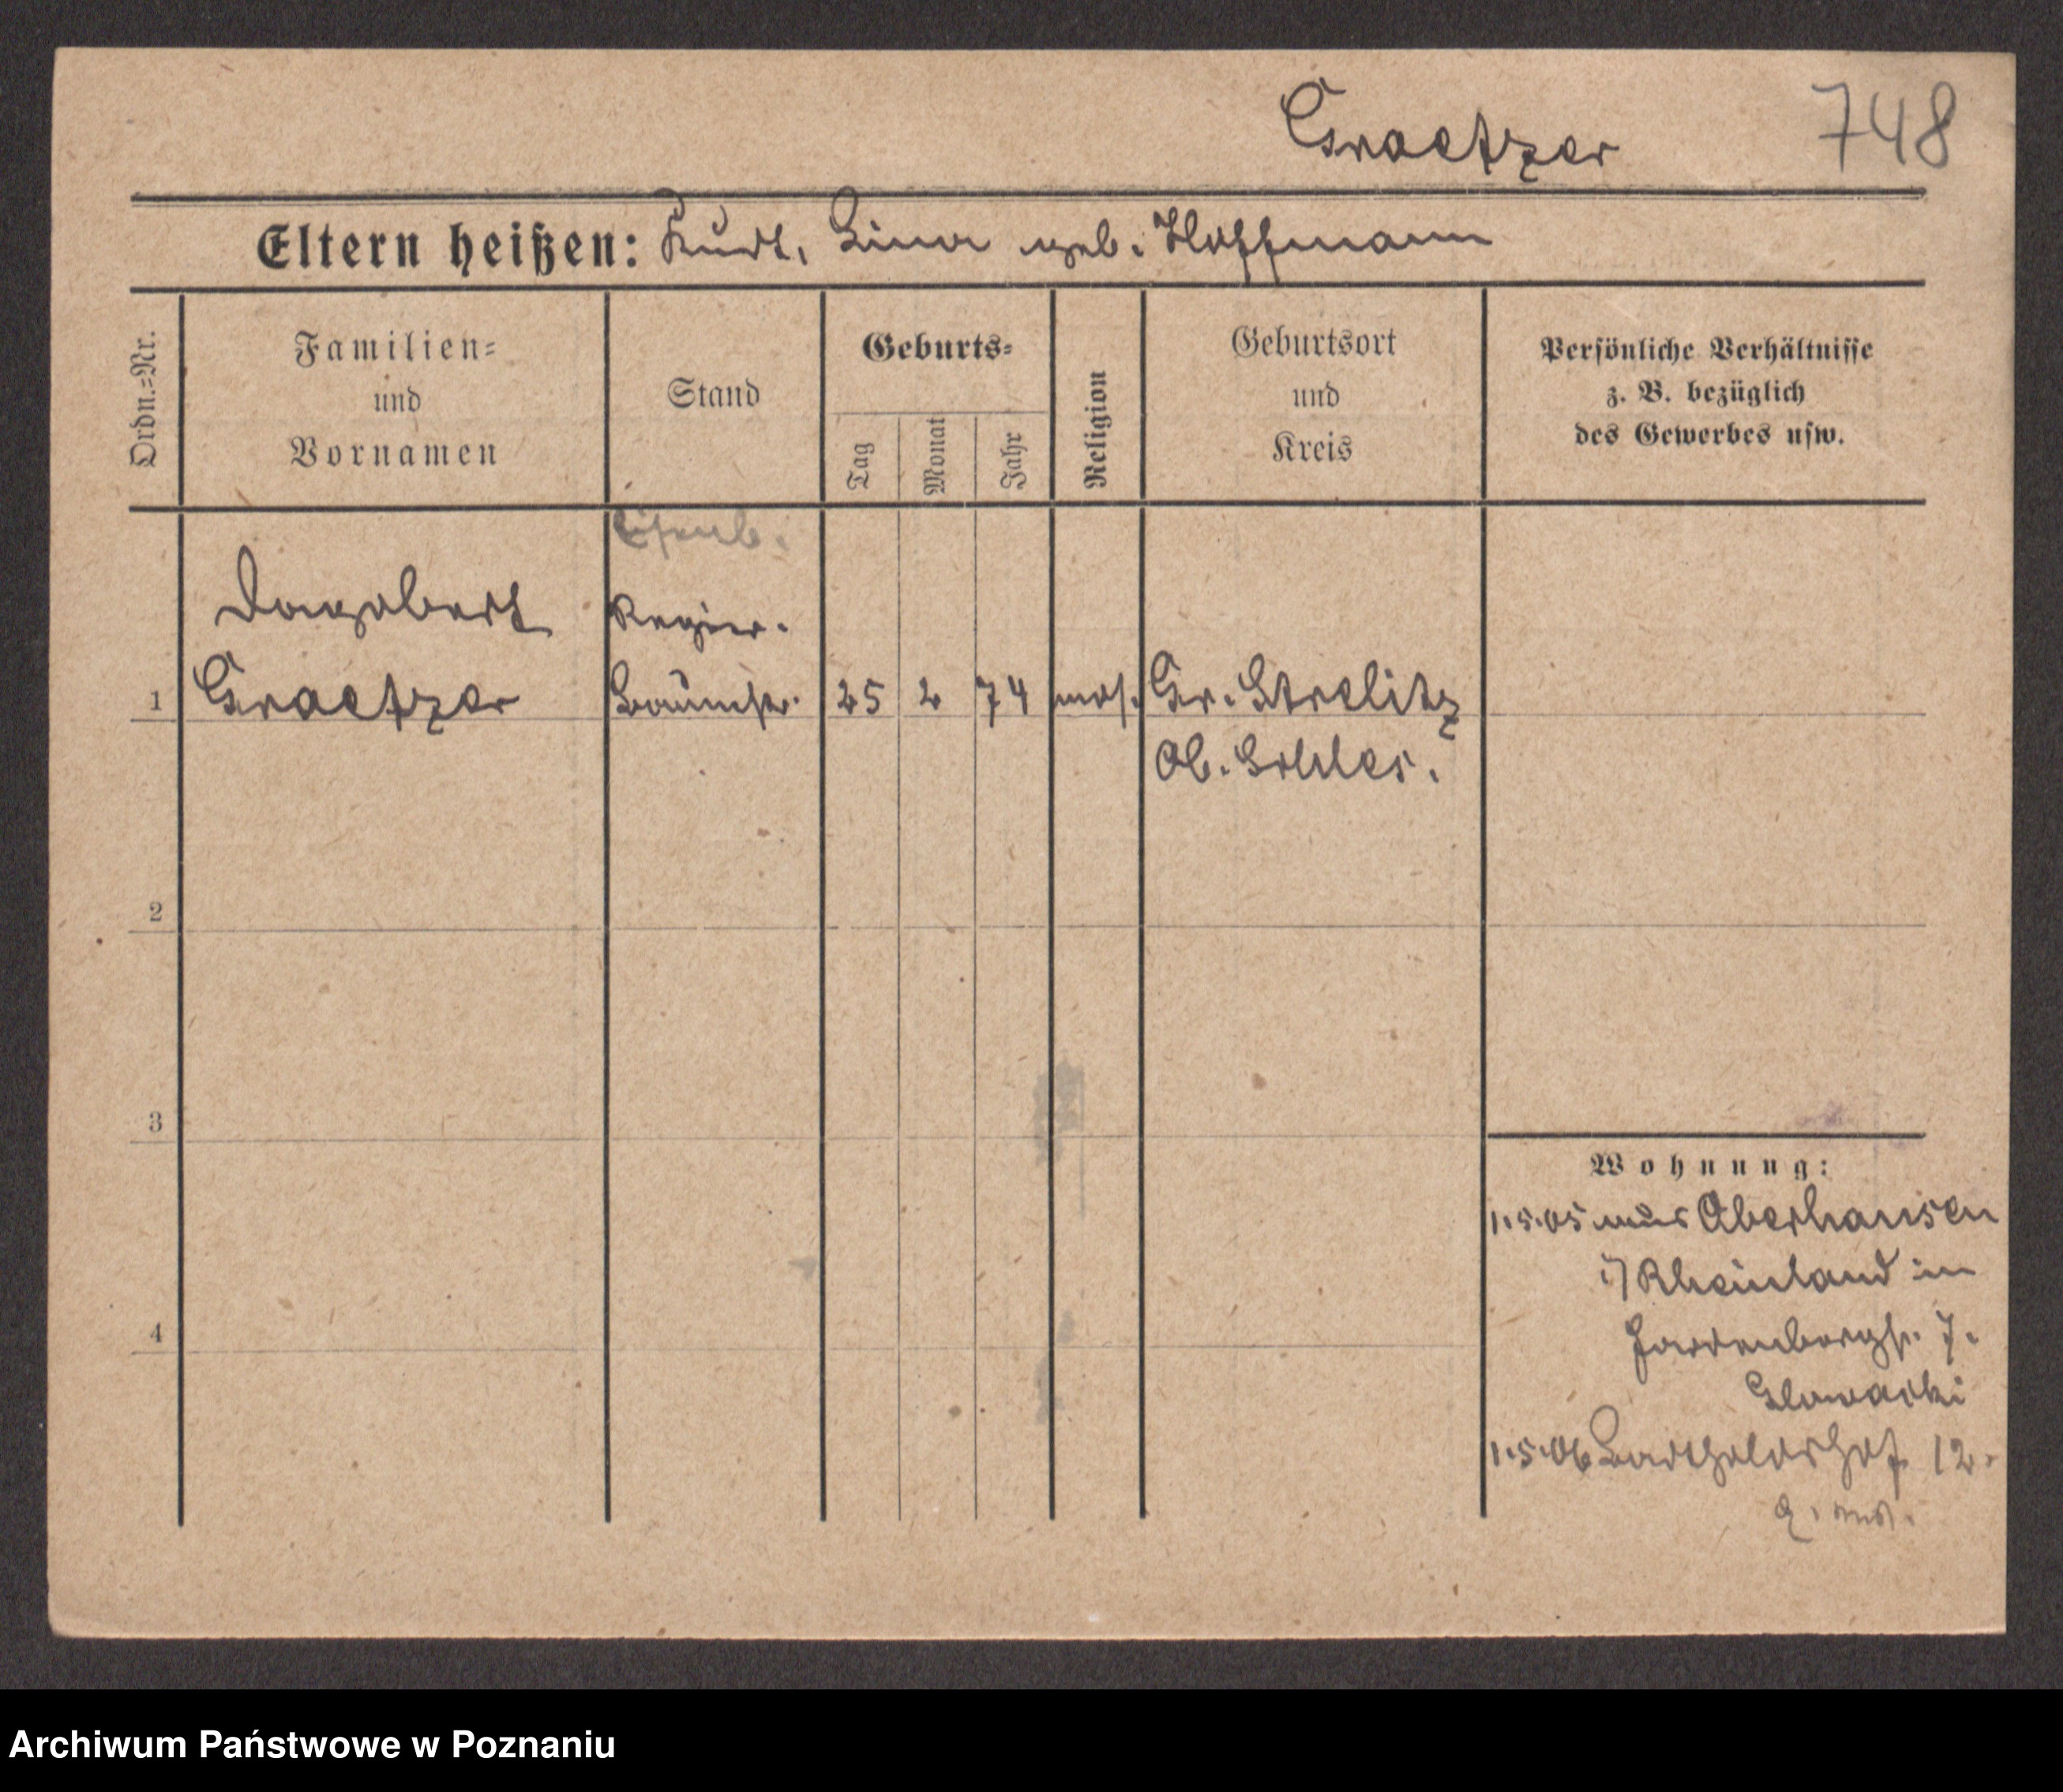 Graetzer 748
Eltern heißen: Kurt, Lina geb. Hoffmann
Ordn.=Nr.
Familien=
und
Vornamen
Stand
Geburts=
Tag
Monat
Jahr
Religion
Geburtsort
und
Kreis
Persönliche Verhältnisse
z. B. bezüglich
des Gewerbes usw.
Eisenb.
Dagobert Regier.
1 Graetzer Baumstr. 25 2 74 mos. Gr. Strelitz
Ob. Schles.
2
3
4
Wohnung:
1.5.05 aus Oberhausen
i/Rheinland in
7.
Glowacki
1.5.06 12.
Archiwum Państwowe w Poznaniu